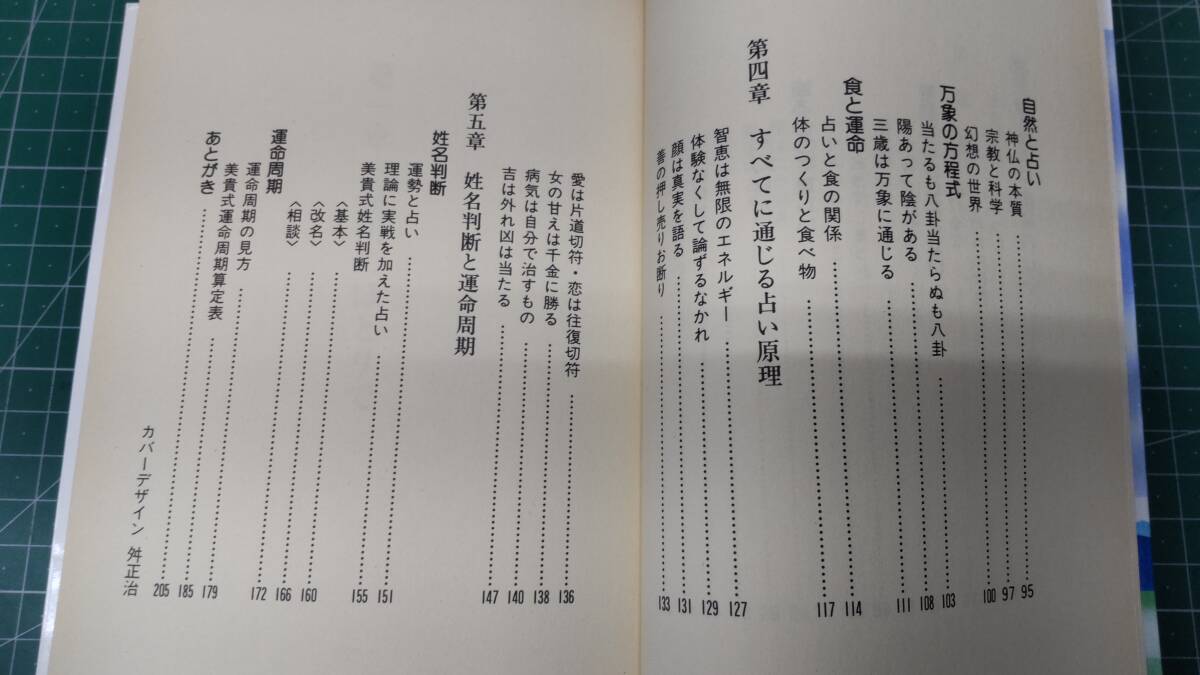 自然と占い
神仏の本質……95
宗教と科学……97
幻想の世界……100
万象の方程式
当たるも八卦当たらぬも八卦……103
陽あって陰がある……108
三歳は万象に通じる……111
食と運命
占いと食の関係……114
体のつくりと食べ物……117
第四章　すべてに通じる占い原理
智恵は無限のエネルギー……127
体験なくして論ずるなかれ……129
顔は真実を語る……131
善の押し売りお断り……133
愛は片道切符・恋は往復切符……136
女の甘えは千金に勝る……138
病気は自分で治すもの……140
吉は外れ凶は当たる……147
第五章　姓名判断と運命周期
姓名判断
運勢と占い……151
理論に実戦を加えた占い……155
美貴式姓名判断
〈基本〉……160
〈改名〉……166
〈相談〉……172
運命周期
運命周期の見方……179
美貴式運命周期算定表……185
あとがき……205
カバーデザイン　舛正治